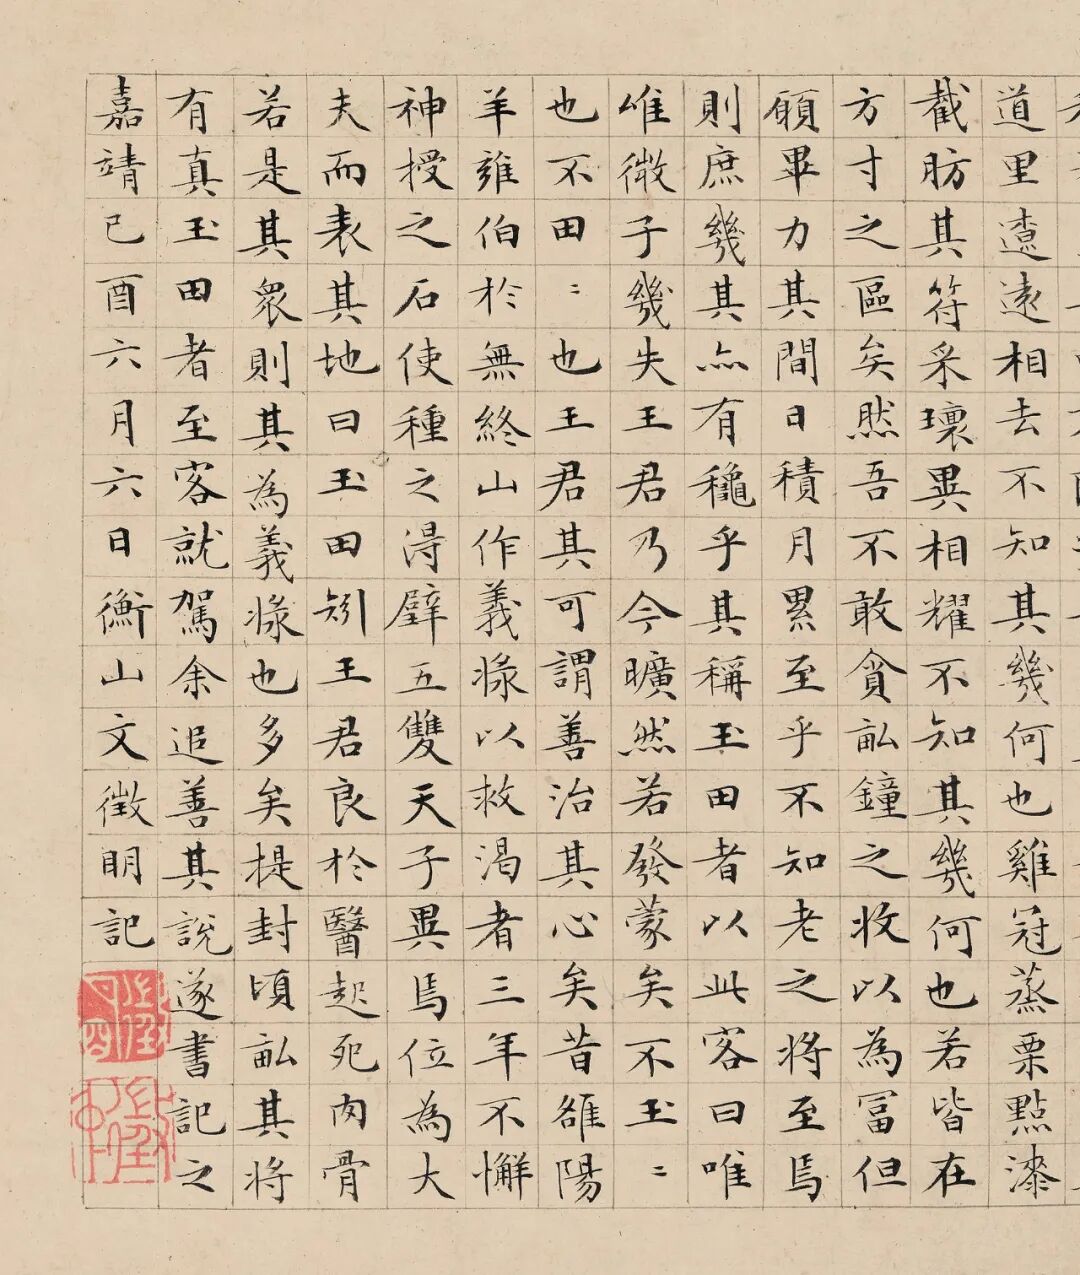 道里遼遠相去不知其幾何也雞冠蒸栗點漆
截肪其符采瓌異相耀不知其幾何也若皆在
方寸之區矣然吾不敢貪畝鐘之收以為富但
願畢力其間日積月累至乎不知老之將至焉
則庶幾其亦有穐乎其稱玉田者以此客曰唯
唯微子幾失王君乃今曠然若發蒙矣不玉〻
也不田〻也王君其可謂善治其心矣昔雒陽
羊雍伯於無終山作義漿以救渴者三年不懈
神授之石使種之得璧五雙天子異焉位為大
夫而表其地曰玉田矧王君良於醫起死肉骨
若是其衆則其為義漿也多矣提封頃畝其將
有真玉田者至客就駕余追善其說遂書記之
嘉靖己酉六月六日衡山文徵明記